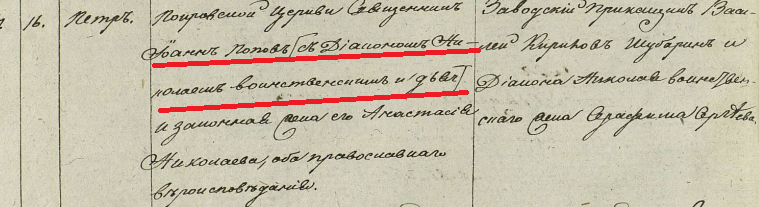 16. Петръ.
Покровской Церкви Священникъ
Іоаннъ Поповъ [съ Діакономъ Ни-
колаемъ воинственскимъ и дьяч]
и законная жена его Анастасія
Николаева, оба православнаго
вѣроисповѣданія.
Заводскій Прикащикъ Васи-
лей Кириковъ Шубаринъ и
Діакона Николая воинствен-
скаго жена Серафима Сергѣева.